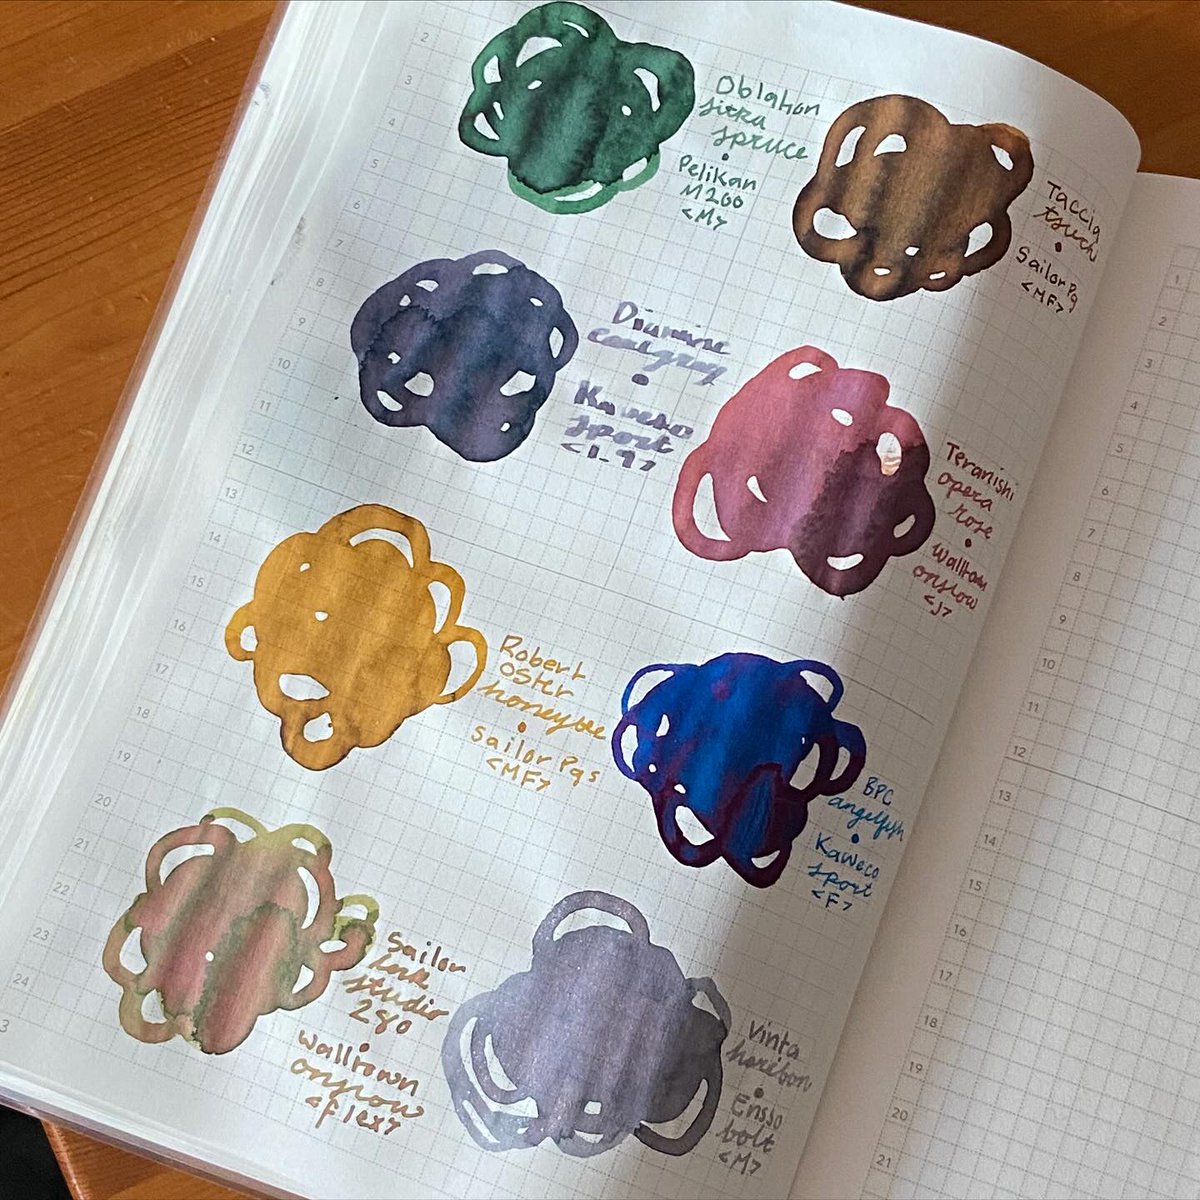 Oblation
sitka
spruce
•
Pelikan
M200
<M>
Taccia
tsuchi
•
Sailor Pg
<MF>
Diamine
earl grey
•
Kaweco
sport
<1.9>
Teranishi
opera
rose
•
Walltown
onslow
<J>
Robert
Oster
honeybee
•
Sailor Pgs
<MF>
BPC
angelfish
•
Kaweco
sport
<F>
Sailor
ink
studio
280
•
Walltown
onslow
<flex>
Vinta
heribon
•
Ensso
bolt
<M>
2
3
4
5
6
7
8
9
10
11
12
13
14
15
16
17
18
19
20
21
22
23
24
3
1
2
3
4
5
6
7
8
9
10
11
12
13
14
15
16
17
18
19
20
21